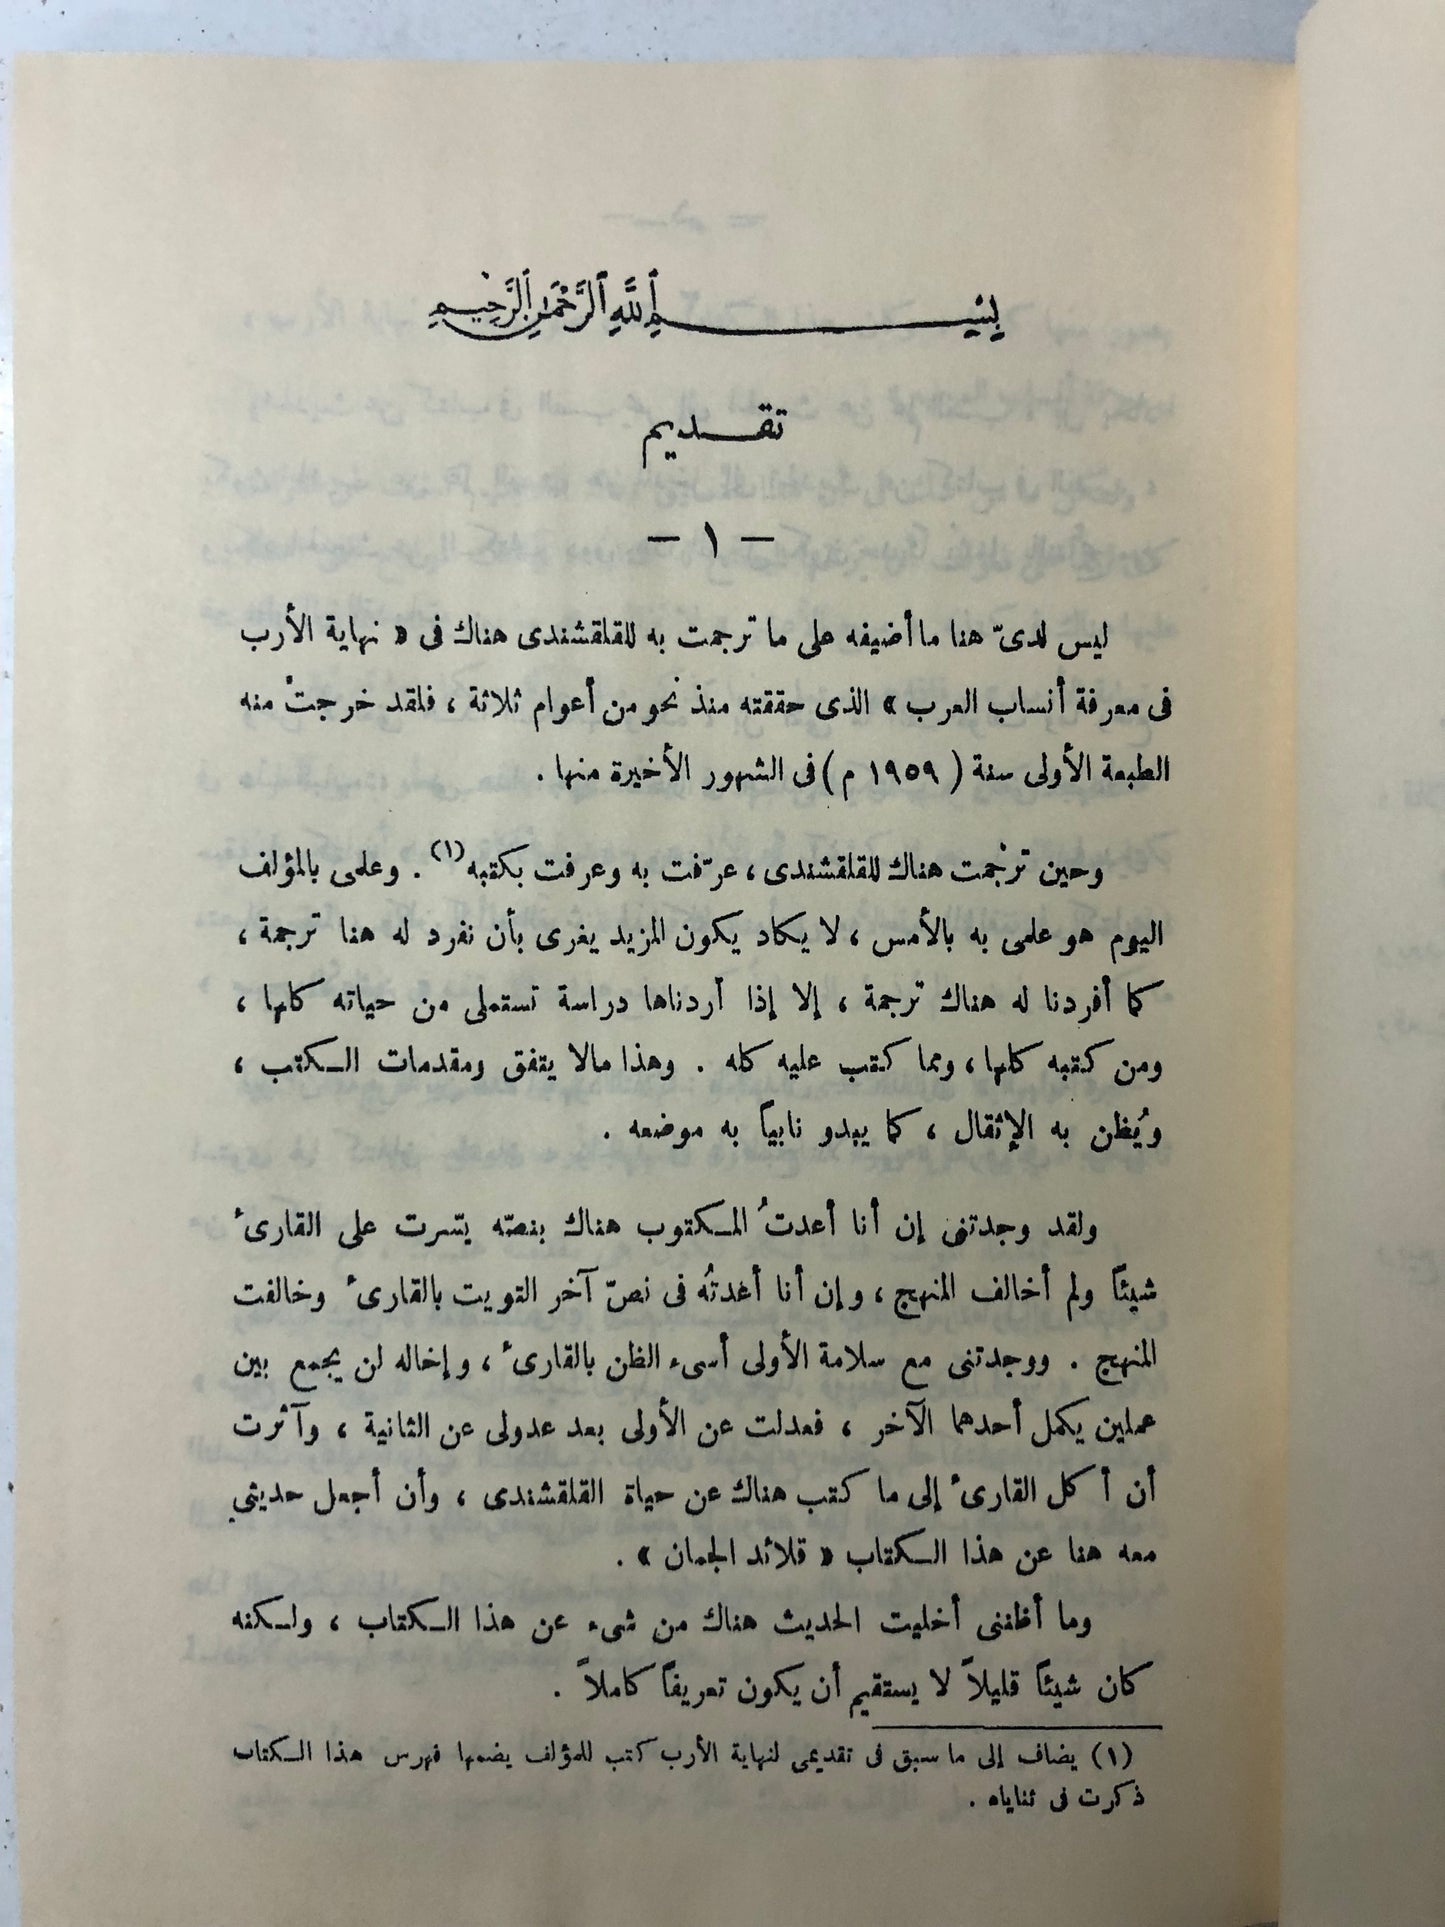 بِسْمِ اللَّهِ الرَّحْمَٰنِ الرَّحِيمِ
تقديم
— ١ —
ليس لدىّ هنا ما أضيفه على ما ترجمت به للقلقشندى هناك فى « نهاية الأرب
فى معرفة أنساب العرب » الذى حققته منذ نحو من أعوام ثلاثة ، فلقد خرجتْ منه
الطبعة الأولى سنة ( ١٩٥٩ م ) فى الشهور الأخيرة منها .
وحين ترجمت هناك للقلقشندى ، عرّفت به وعرفت بكتبه (١) . وعلمى بالمؤلف
اليوم هو علمى به بالأمس ، لا يكاد يكون المزيد يغرى بأن نفرد له هنا ترجمة ،
كما أفردنا له هناك ترجمة ، إلا إذا أردناها دراسة تستملى من حياته كلها ،
ومن كتبه كلها ، ومما كتب عليه كله . وهذا مالا يتفق ومقدمات الكتب ،
ويُظن به الإثقال ، كما يبدو نابياً به موضعه .
ولقد وجدتنى إن أنا أعدتُ المكتوب هناك بنصّه يسّرت على القارىء
شيئاً ولم أخالف المنهج ، وإن أنا أعدتُه فى نصّ آخر التويت بالقارىء وخالفت
المنهج . ووجدتنى مع سلامة الأولى أسىء الظن بالقارىء ، وإخاله لن يجمع بين
عملين يكمل أحدهما الآخر ، فعدلت عن الأولى بعد عدولى عن الثانية ، وآثرت
أن أكل القارىء إلى ما كتب هناك عن حياة القلقشندى ، وأن أجعل حديثي
معه هنا عن هذا الكتاب « قلائد الجمان » .
وما أظننى أخليت الحديث هناك من شىء عن هذا الكتاب ، ولكنه
كان شيئاً قليلاً لا يستقيم أن يكون تعريفاً كاملاً .
(١) يضاف إلى ما سبق فى تقديمى لنهاية الأرب كتب للمؤلف يضمها فهرس هذا الكتاب
ذكرت فى ثناياه .